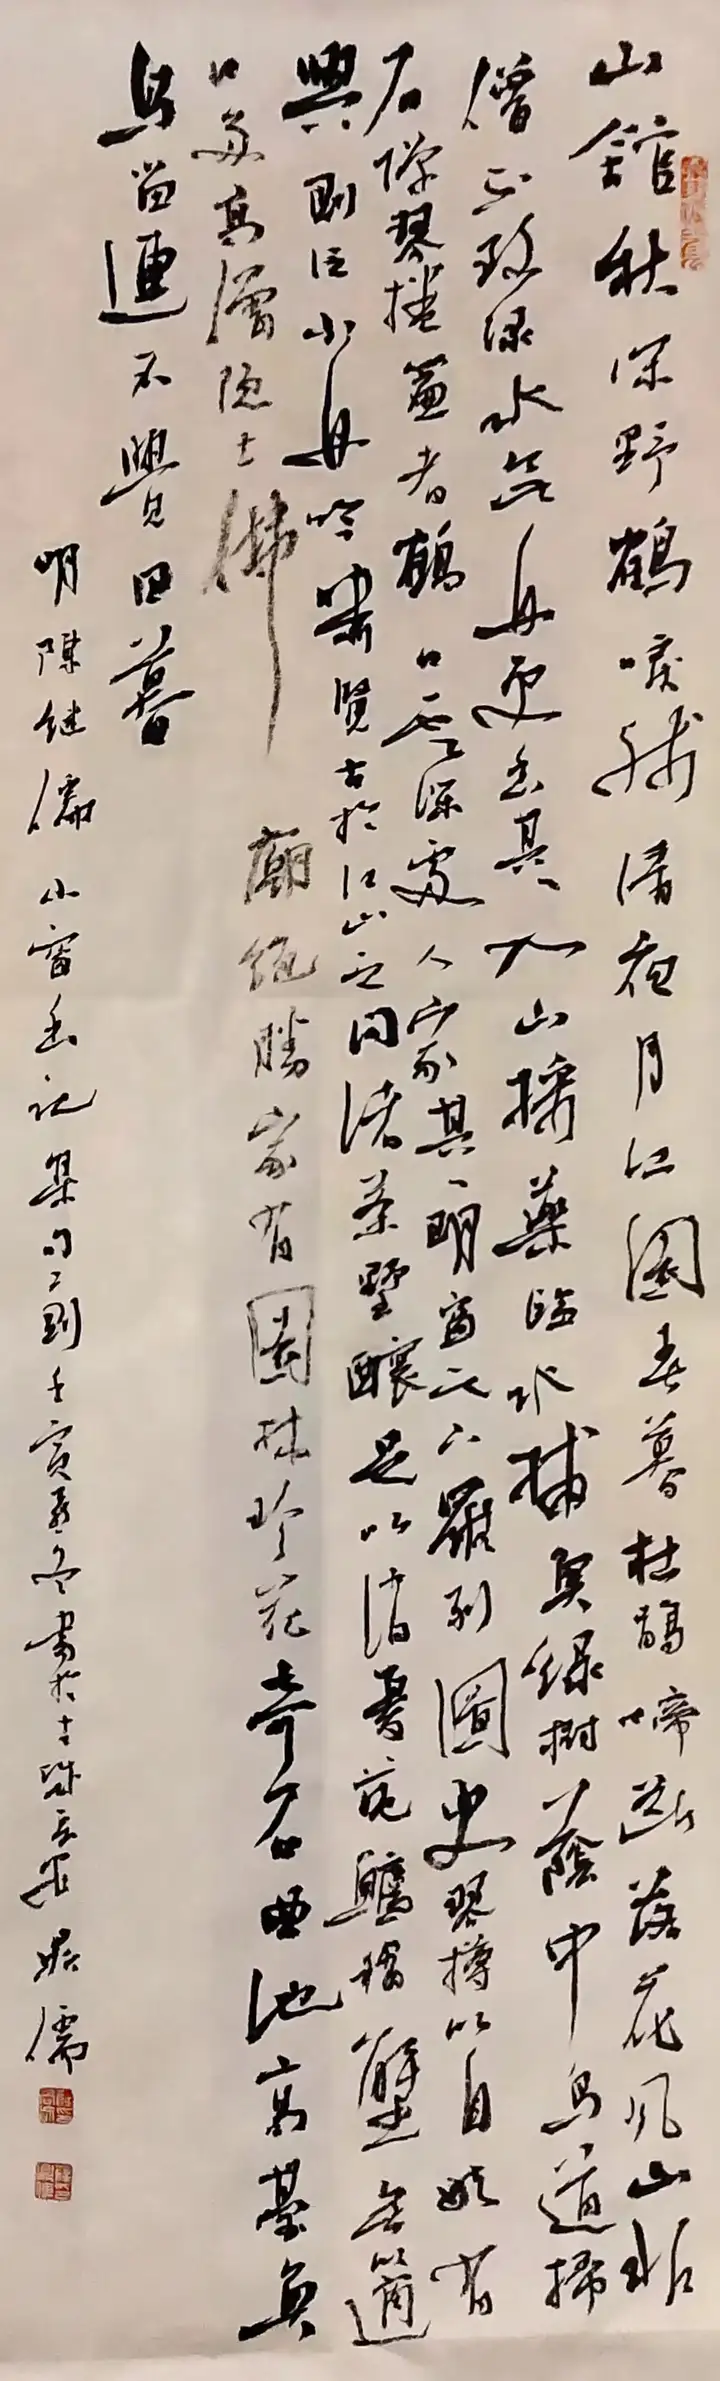 山館秋深野鶴唳殘清夜月江園春暮杜鵑啼斷落花風山非
僧不致綠水無舟更幽其入山採藥臨水捕魚綠樹蔭中鳥道掃
石彈琴捲簾看鶴白雲深處人家其明窗之下羅列圖史琴樽以自娛有
興則泛小舟吟嘯覽古於江山之間渚茶野釀足以消憂蓴鱸稻蟹足以適
口多高僧隱士佛廟絕勝家有園林珍花奇石曲池高臺魚
鳥留連不覺日暮
明陳繼儒小窗幽記集句二則壬寅孟冬書於